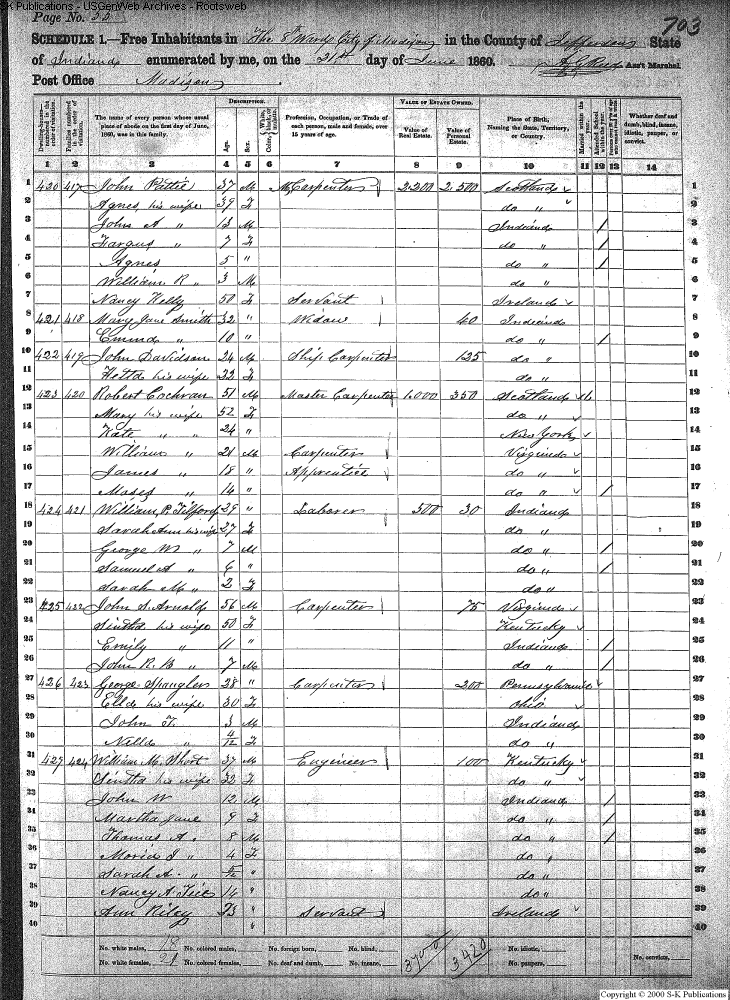 S-K Publications - USGenWeb Archives - Rootsweb
Page No. 55
703
SCHEDULE 1.—Free Inhabitants in The 8th Ward City of Madison in the County of Jefferson State
of Indiana enumerated by me, on the 21st day of June 1860. Ass't Marshal.
Post Office Madison
Dwelling-houses—numbered in the order of visitation.
Families numbered in the order of visitation.
The name of every person whose usual place of abode on the first day of June, 1860, was in this family.
DESCRIPTION.
Age.
Sex.
White, Color, black, or mulatto.
Profession, Occupation, or Trade of each person, male and female, over 15 years of age.
VALUE OF ESTATE OWNED.
Value of Real Estate.
Value of Personal Estate.
Place of Birth, Naming the State, Territory, or Country.
Married within the year.
Attended School within the year.
Whether deaf and dumb, blind, insane, idiotic, pauper, or convict.
1 2 3 4 5 6 7 8 9 10 11 12 13 14
1 420 417 John 37 M M Carpenter 2200 2500 Scotland 1
2 Agnes, his wife 39 F do " 2
3 John A " 13 M Indiana / 3
4 Fargus " 7 F do " / 4
5 Agnes 5 " do " / 5
6 William R " 3 M do " 6
7 Nancy Kelly 50 F Servant Ireland 7
8 421 418 Mary Jane Smith 32 " Widow 40 Indiana 8
9 Emma " 10 " do " / 9
10 422 419 John Davidson 24 M Ship Carpenter 125 do " 10
11 his wife 22 F do " 11
12 423 420 Robert Cochran 51 M Master Carpenter 1,000 350 Scotland 12
13 Mary his wife 52 F do " 13
14 Kate " " 24 " New York 14
15 William " 21 M Carpenter Virginia 15
16 James " 18 " Apprentice do " 16
17 Moses " 14 " do " / 17
18 424 421 William P. Tilford 29 " Laborer 500 30 Indiana 18
19 Sarah Ann his wife 27 F do " 19
20 George W " 7 M do " / 20
21 Samuel A " 6 " do " / 21
22 Sarah M " 2 F do " 22
23 425 422 John S. Arnold 56 M Carpenter 75 Virginia 23
24 his wife 50 F Kentucky 24
25 Emily " 11 " Indiana / 25
26 John R. B " 7 M do " / 26
27 426 423 George Spangler 28 " Carpenter 200 Pennsylvania 27
28 Ella his wife 30 F Ohio 28
29 John F. 3 M Indiana 29
30 Nella " 4/12 F do " 30
31 427 424 William M. Short 37 M Engineer 100 Kentucky 31
32 his wife 32 F do " 32
33 John W 12 M Indiana / 33
34 Martha Jane 9 F do " / 34
35 Thomas A. 8 M do " / 35
36 " 4 F do " 36
37 Sarah A. " do " 37
38 Nancy A 14 " do " 38
39 Ann Riley " Servant Ireland 39
40 40
No. white males, 18 No. colored males, No. foreign born, No. blind, 3700 3420 No. idiotic,
No. white females, 21 No. colored females, No. deaf and dumb, No. insane, No. paupers, No. convicts,
Copyright © 2000 S-K Publications